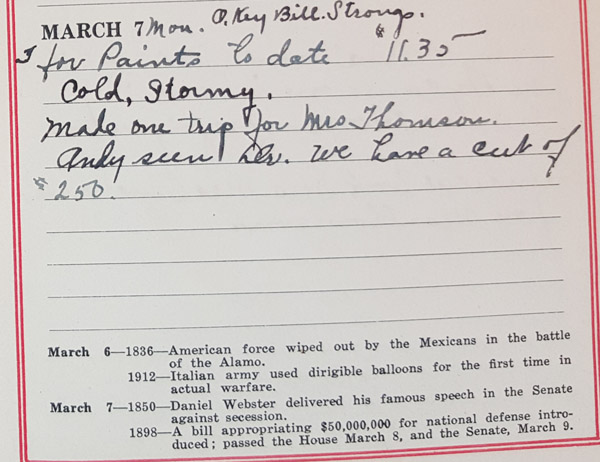 MARCH 7 Mon. O.Key Bill. Strongs.
for Paints to date $11.35
Cold, Stormy.
Made one trip for Mrs Thomson.
Andy seen Lev. We have a cut of
$250.
March 6—1836—American force wiped out by the Mexicans in the battle
of the Alamo.
1912—Italian army used dirigible balloons for the first time in
actual warfare.
March 7—1850—Daniel Webster delivered his famous speech in the Senate
against secession.
1898—A bill appropriating $50,000,000 for national defense intro-
duced; passed the House March 8, and the Senate, March 9.